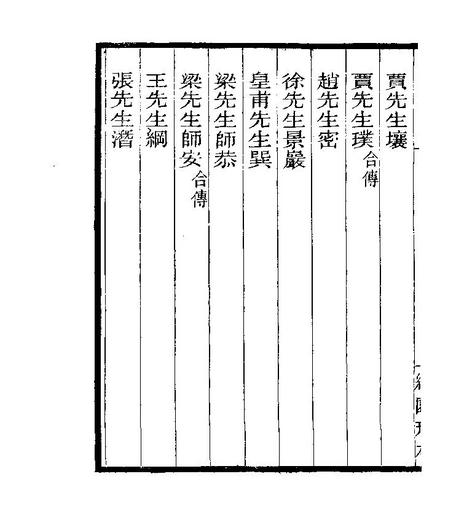 賈先生壤
賈先生璞合傳
趙先生密
徐先生景巖
皇甫先生巽
梁先生師恭
梁先生師安合傳
王先生綱
張先生潛